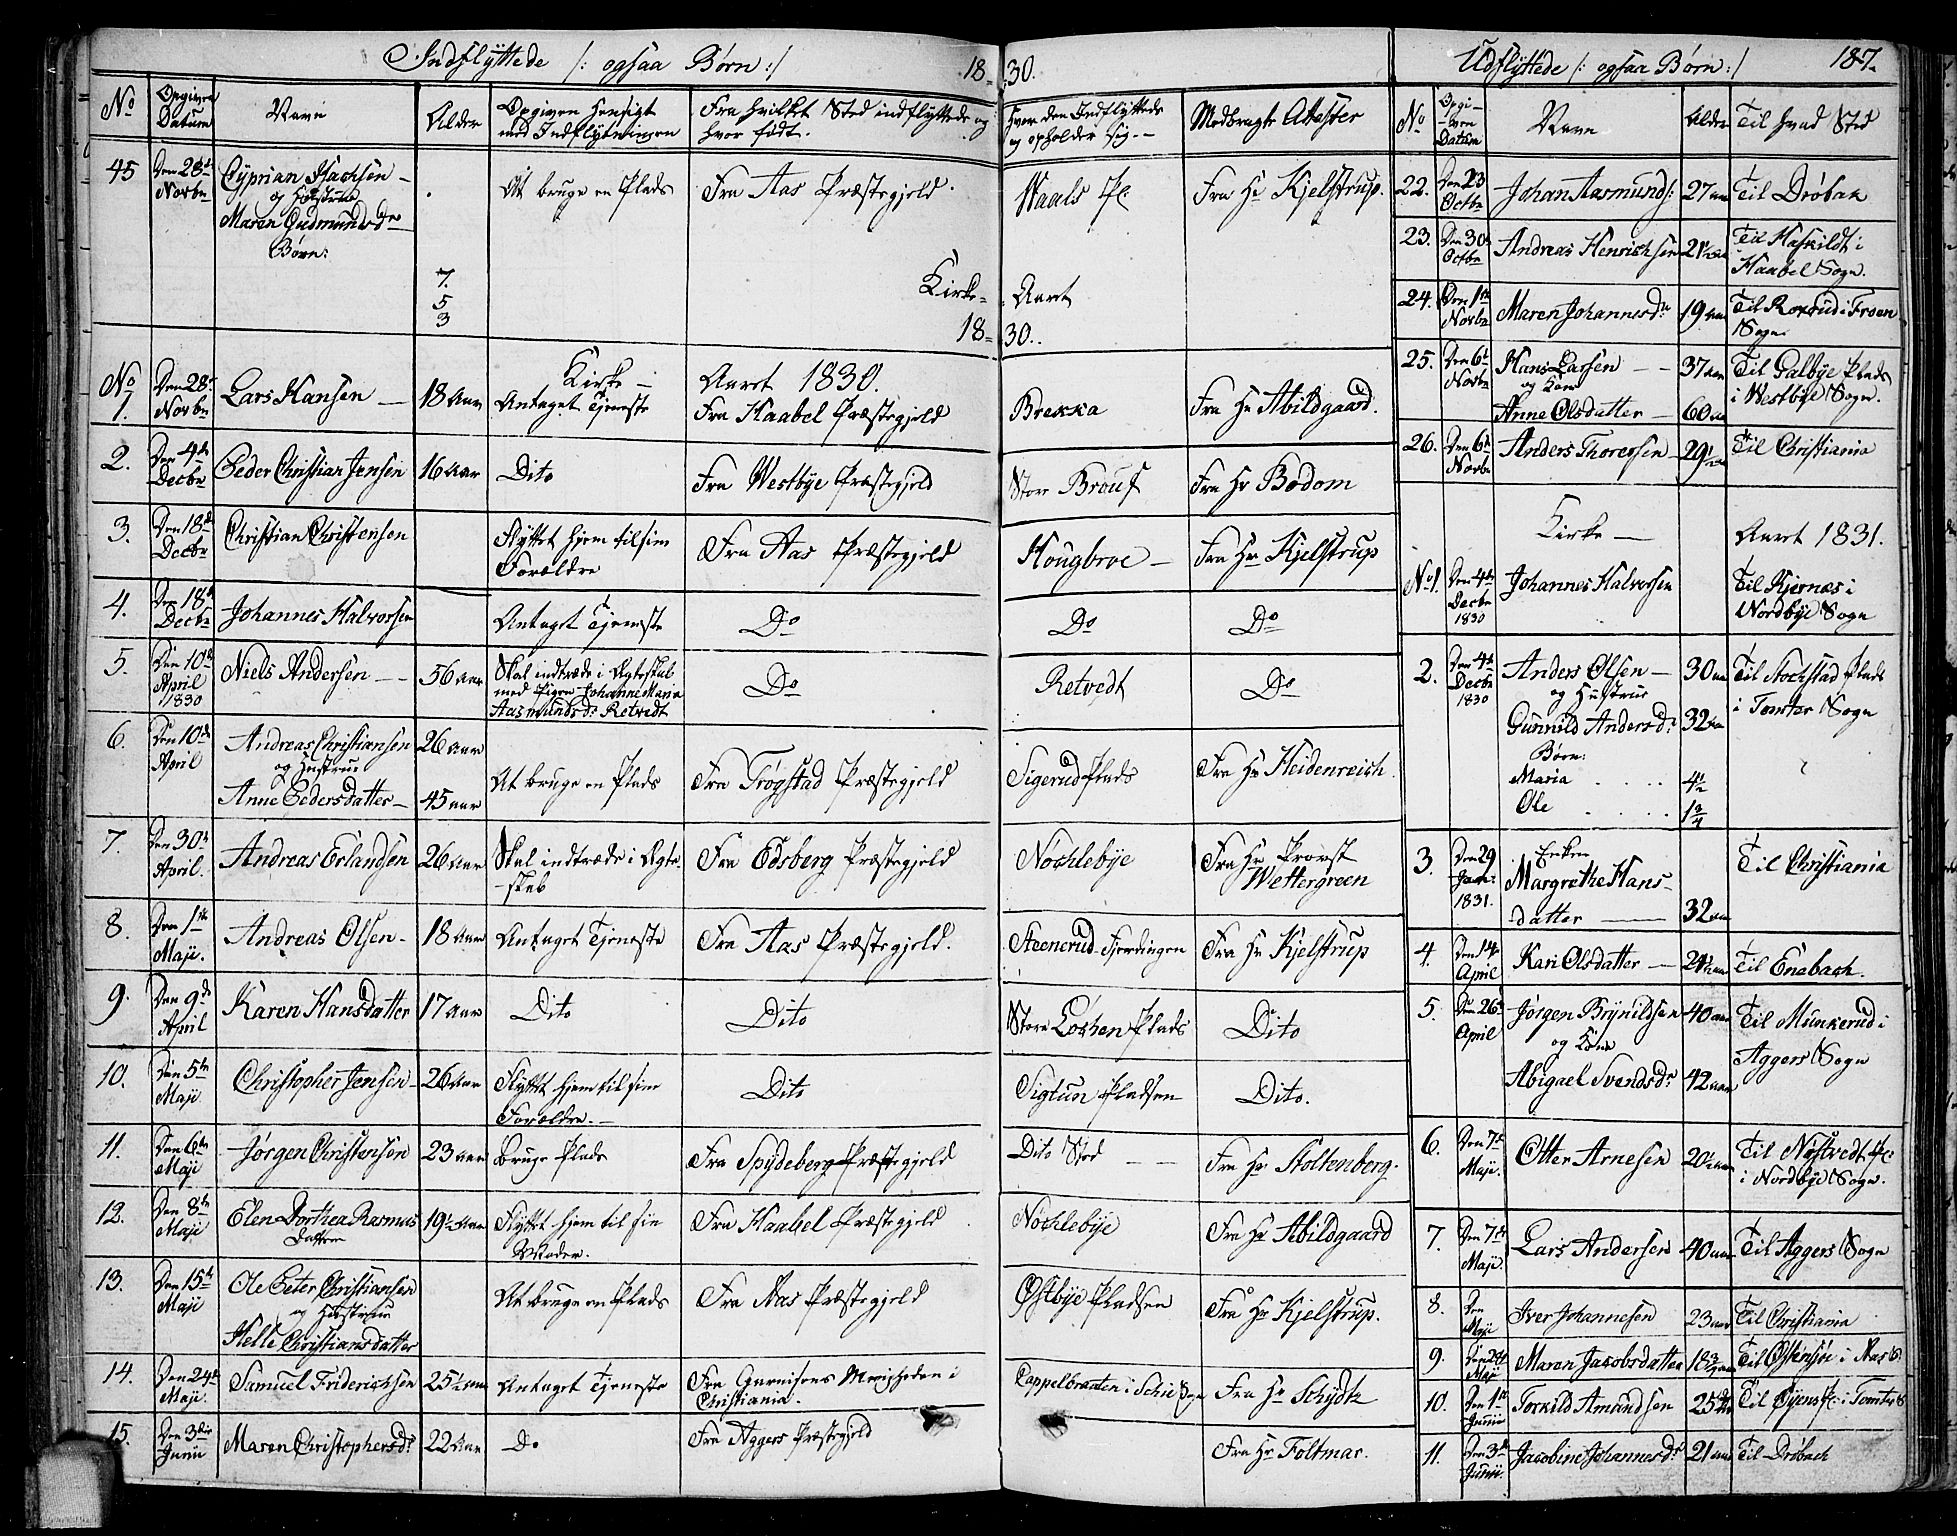 Indflyttede /: ogsaa Børn :/ 18-30.
No
Opgiven Datum
Navn
Alder
Opgiven Hensigt med Indflytningen
Fra hvilket Sted indflyttede og hvor født.
Hvor den Indflyttede og opholder sig.
Medbragte Attester
45 Den 28de Novbr Cyprian Isachsen — At bruge en Plads Fra Aas Præstegjeld. Waals Pl. Fra Hr Kjelstrup.
og Hustrue
Maren Gudmundsdr
Børn:
7.
5
3
Kirke- Aaret
18-30.
Kirke- Aaret 1830.
No 1. Den 28de Novbr Lars Hansen — 18 Aar Antaget Tjeneste Fra Haabel Præstegjeld Brekka Fra Hr Abildgaard.
2. Den 4de Decbr Peder Christian Jensen 16 Aar Dito Fra Westbye Præstegjeld Store Brous Fra Hr Bodom
3. Den 18de Decbr Christian Christensen Flyttet hjem til sine Forældre Fra Aas Præstegjeld Hougbroe — Fra Hr Kjelstrup
4. Den 18de Decbr Johannes Halvorsen Antaget Tjeneste Do Do Do
5. Den 10de April 1830 Niels Andersen — 56 Aar Skal indtræde i Ægteskab med Pigen Johanne Maria Aasmundsdr Retvedt Do Retvedt Do
6. Den 10de April Andreas Christiansen 26 Aar
og Hustrue
Anne Pedersdatter — 45 aar At bruge en Plads Fra Trøgstad Præstegjeld Sigerud Plads Fra Hr Heidenreich.
7. Den 30te April. Andreas Erlandsen 26 Aar Skal indtræde i Ægteskab Fra Edsberg Præstegjeld Nøchlebye Fra Hr Provst Wettergreen
8. Den 1te Maji. Andreas Olsen — 18 Aar Antaget Tjeneste Fra Aas Præstegjeld. Steenerud Fjerdingen Fra Hr Kjelstrup
9. Den 9de April Karen Hansdatter 17 Aar Dito Dito Store Lochen Plads Dito
10. Den 5te Maji Christopher Jensen — 26 Aar Flyttet hjem til sine Forældre. — Dito Sigtun Pladsen Dito.
11. Den 6te Maji Jørgen Christensen 23 aar Bruge Plads Fra Spydeberg Præstegjeld Dito Sted — Fra Hr Stoltenberg.
12. Den 8de Maji Elen Dorthea Rasmus Datter 19½ Aar Flyttet hjem til sin Moder. Fra Haabel Præstegjeld Nøchlebye Fra Hr Abildgaard
13. Den 15de Maji Ole Peter Christiansen
og Hustrue
Helle Christiansdatter At bruge en Plads Fra Aas Præstegjeld Østbye Pladsen Fra Hr Kjelstrup.
14. Den 24de Maji. Samuel Friderichsen 25½ aar Antaget Tjeneste Fra Garnisons Menigheden i Christiania. Pappelbraaten i Schie Sogn Fra Hr Schydtz
15. Den 3die Junii Maren Christophersdr 22 Aar Do Fra Aggers Præstegjeld Fra Hr Foltmar.
Udflyttede /: ogsaa Børn :/ 187.
No
Opgiven Datum
Navn
Alder
Til hvad Sted
22. Den 23 Octbr Johan Aasmunds: 27 aar Til Drøbak
23. Den 30te Octbr Andreas Henrichsen 21½ aar Til Haskildt i Haabel Sogn.
24. Den 1te Novbr Maren Johannesdr 19 aar Til Roxrud i Froen Sogn
25. Den 6te Novbr Hans Larsen — 37 aar Til Galbye Plads i Westbye Sogn.
og Kone
Anne Olsdatter — 60 aar
26. Den 6te Novbr Anders Thoresen 29½ aar Til Christiania
Kirke — Aaret 1831.
No 1. Den 4de Decbr 1830 Johannes Halvorsen Til Kjernes i Nordbye Sogn
2. Den 4de Decbr 1830 Anders Olsen — 30 aar Til Stochstad Plads i Tomter Sogn
og Hustrue
Gunnild Andersdr 32 aar
Børn:
Maria 4½
Ole 1¾
3. Den 29 Janr 1831. Enken
Margrethe Hansdatter — 32 aar Til Christiania
4. Den 14 April Kari Olsdatter — 24½ aar Til Enebach.
5. Den 26de April Jørgen Brynildsen 40 aar Til Munkerud i Aggers Sogn
og Kone
Abigael Svendsdr 42 aar
6. Den 7de Maji. Otter Arnesen 20½ aar Til Nøstvedt Pl. i Nordbye Sogn.
7. Den 7de Maji. Lars Andersen 40 aar Til Aggers Sogn
8. Den Maji Iver Johannesen 23 aar Til Christiania
9. Den 24 Maji Maren Jacobsdatter 18¾ aar Til Østensjøe i Aas S.
10. Den 1te Junii Torkild Amundsen 25 Aar Til Øyens Pl. i Tomter S
11. Den 3de Junii. Jacobine Johannesdr 21 aar Til Drøbach